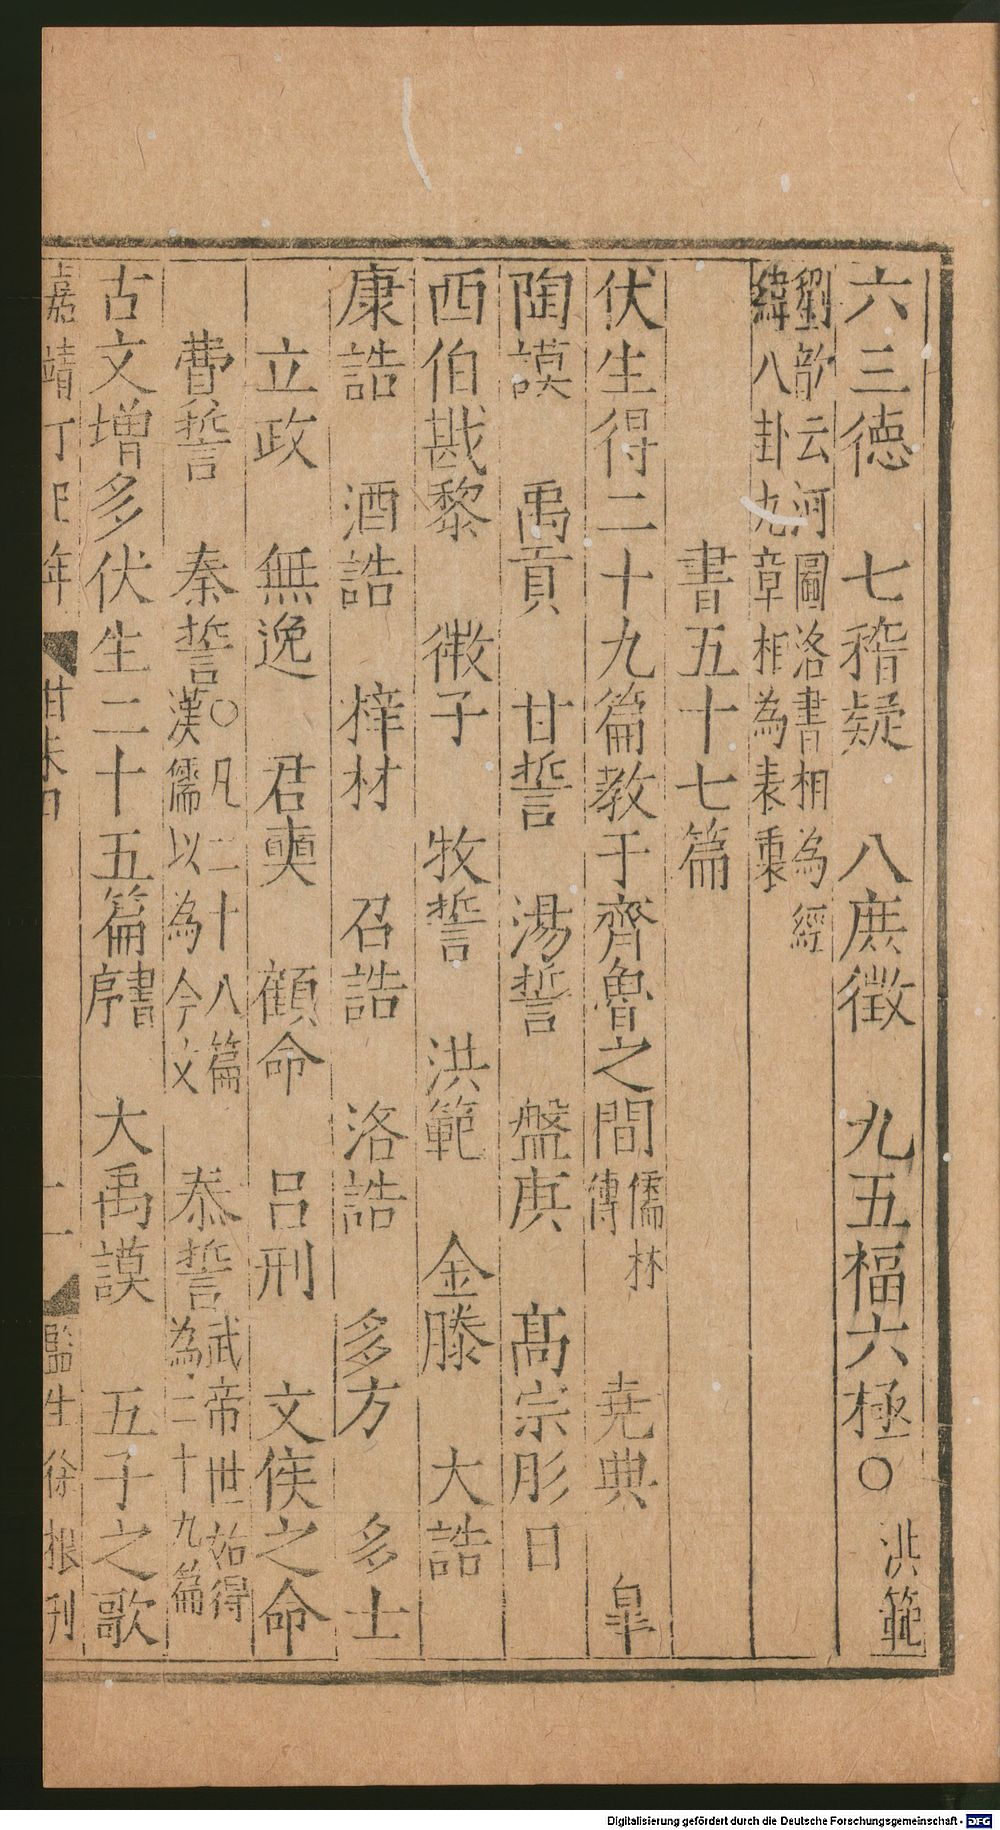 六三徳 七稽疑 八庶徴 九五福六極○洪範
劉歆云河圖洛書相為經
緯八卦九章相為表裏
書五十七篇
伏生得二十九篇教于齊魯之間儒林傳 堯典 皐
陶謨 禹貢 甘誓 湯誓 盤庚 髙宗肜日
西伯戡黎 微子 牧誓 洪範 金滕 大誥
康誥 酒誥 梓材 召誥 洛誥 多方 多士
立政 無逸 君奭 顧命 吕刑 文侯之命
費誓 秦誓○凡二十八篇漢儒以為今文 泰誓武帝世始得為二十九篇
古文增多伏生二十五篇書序 大禹謨 五子之歌
嘉靖丁巳年 二 監生徐根刊
Digitalisierung gefördert durch die Deutsche Forschungsgemeinschaft - DFG